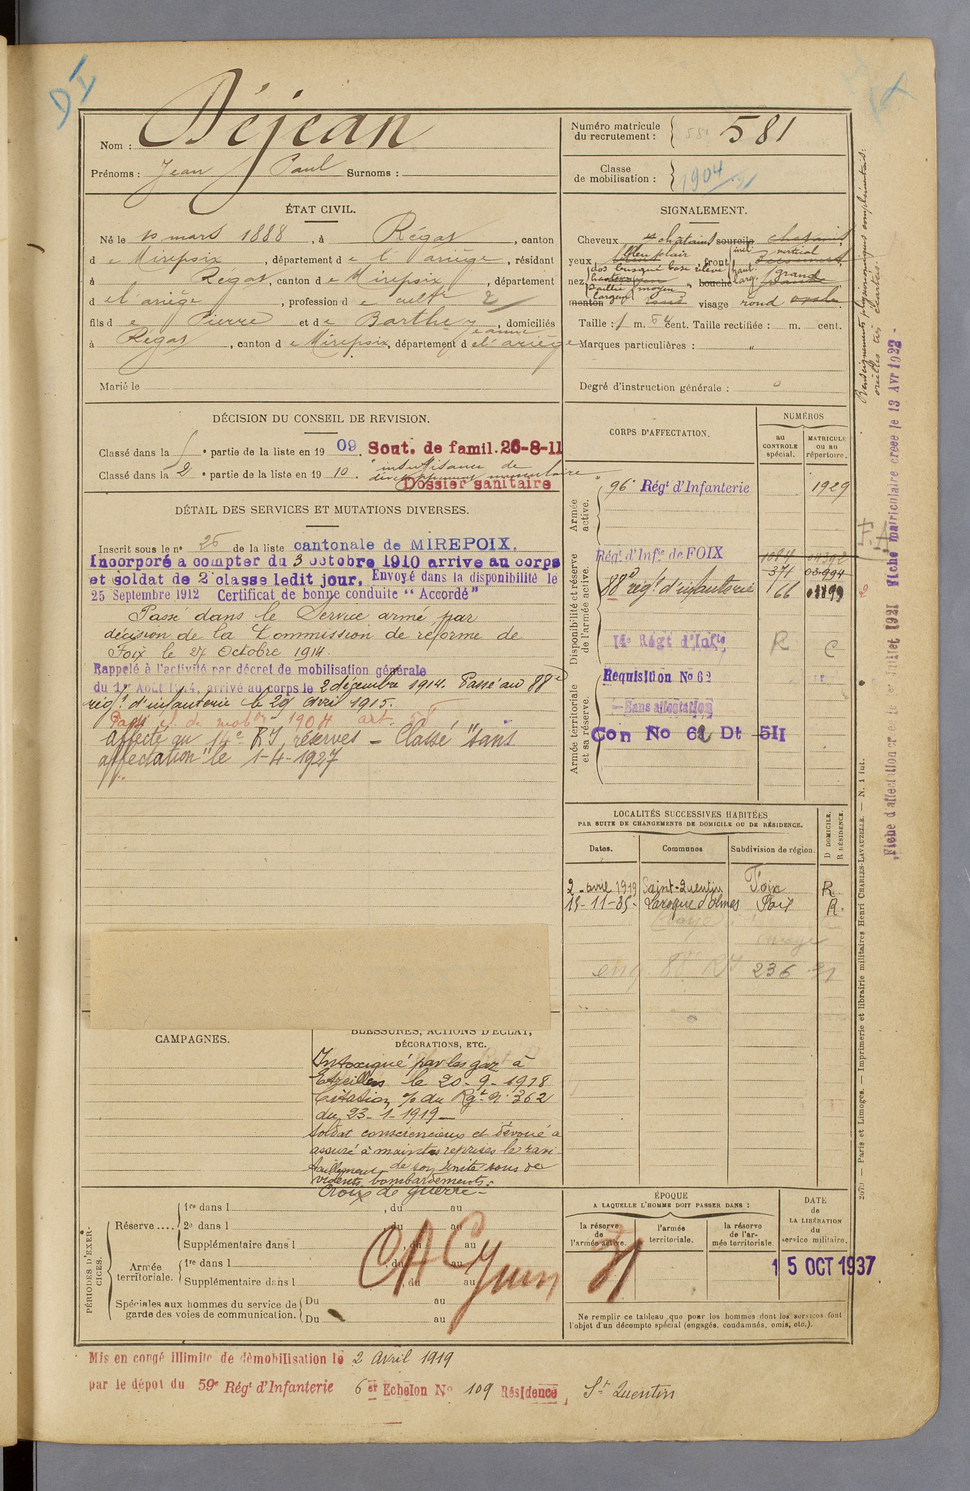 DI
Nom : Déjean
Prénoms : Jean Paul Surnoms :
Numéro matricule du recrutement : 581
Classe de mobilisation : 1904
ÉTAT CIVIL.
Né le 10 mars 1888, à Régat, canton
d e Mirepoix, département d e l'ariège, résidant
à Régat, canton d e Mirepoix, département
d el ariège, profession d e cultr 2
fils d e Pierre et d e Barthe Jeanne, domiciliés
à Régat, canton d e Mirepoix, département d el'ariège
Marié le
SIGNALEMENT.
Cheveux chatains sourcils chatains
yeux bleu clair, front vertical
nez dos busqué base élevé bouche grande
saillie moyen
menton largeur visage rond ovale
Taille : 1 m. 54 cent. Taille rectifiée : m. cent.
Marques particulières : "
Degré d'instruction générale : 0
Renseignements physionomiques complémentaires:
DÉCISION DU CONSEIL DE REVISION.
Classé dans la 1 partie de la liste en 19 09 Sout. de famil. 26-8-11
Classé dans la 2 partie de la liste en 19 10. insuffisance de
développement musculaire
Dossier sanitaire
DÉTAIL DES SERVICES ET MUTATIONS DIVERSES.
Inscrit sous le nº 26 de la liste cantonale de MIREPOIX.
Incorporé a compter du 3 octobre 1910 arrive au corps
et soldat de 2e classe ledit jour. Envoyé dans la disponibilité le
25 Septembre 1912 Certificat de bonne conduite "Accordé"
Passé dans le Service armé par
décision de la Commission de réforme de
Foix le 27 Octobre 1914.
Rappelé à l'activité par décret de mobilisation générale
du 1er Août 1914, arrivé au corps le 2 décembre 1914. Passé au 88e
régt d'infanterie le 29 avril 1915.
Passé cl. de mobon 1904 art. 58
affecté au 14e RI réserves - Classé "sans
affectation" le 1-4-1927
CORPS D'AFFECTATION.
NUMÉROS
au CONTROLE spécial.
MATRICULE ou au répertoire.
Armée active.
96e Régt d'Infanterie 1929
Disponibilité et réserve de l'armée active.
Régt d'Infie de FOIX
371 03994
88e régt d'infanterie 166
14e Régt d'Infie R C
Armée territoriale et sa réserve
Requisition No 62
Sans affectation
Con No 62 Dt 511
Fiche d'affectation créée le Juillet 1921 Fiche matriculaire créée le 13 Avr 1922
LOCALITÉS SUCCESSIVES HABITÉES
PAR SUITE DE CHANGEMENTS DE DOMICILE OU DE RÉSIDENCE.
Dates. Communes Subdivision de région.
D DOMICILE. R RÉSIDENCE.
2 avril 1919 Saint-Quentin Foix R
15-11-35 Laroque d'Olmes Foix R.
88e RI 236
CAMPAGNES.
BLESSURES, ACTIONS D'ÉCLAT,
DÉCORATIONS, ETC.
Intoxiqué par les gaz à
le 20-9-1918
Citation o/ du Rgt Nº 362
du 23-1-1919
Soldat consciencieux et dévoué a
assuré à maintes reprises le ravi-
taillement de son unité sous de
violents bombardements.
Croix de guerre.
PÉRIODES D'EXERCICES.
Réserve....
1re dans l , du au
2e dans l , du au
Supplémentaire dans l , du au
Armée territoriale.
1re dans l , du au
Supplémentaire dans l , du au
Spéciales aux hommes du service de garde des voies de communication.
Du au
Du au
ÉPOQUE
A LAQUELLE L'HOMME DOIT PASSER DANS :
la réserve de l'armée active.
l'armée territoriale.
la réserve de l'armée territoriale.
DATE DE LA LIBÉRATION du service militaire.
15 OCT 1937
Ne remplir ce tableau que pour les hommes dont les services font
l'objet d'un décompte spécial (engagés, condamnés, omis, etc.).
Paris et Limoges. — Imprimerie et librairie militaires Henri CHARLES-LAVAUZELLE.
Mis en congé illimité de démobilisation le 2 avril 1919
par le dépot du 59e Régt d'Infanterie 6er Echelon No 109 Résidence St Quentin